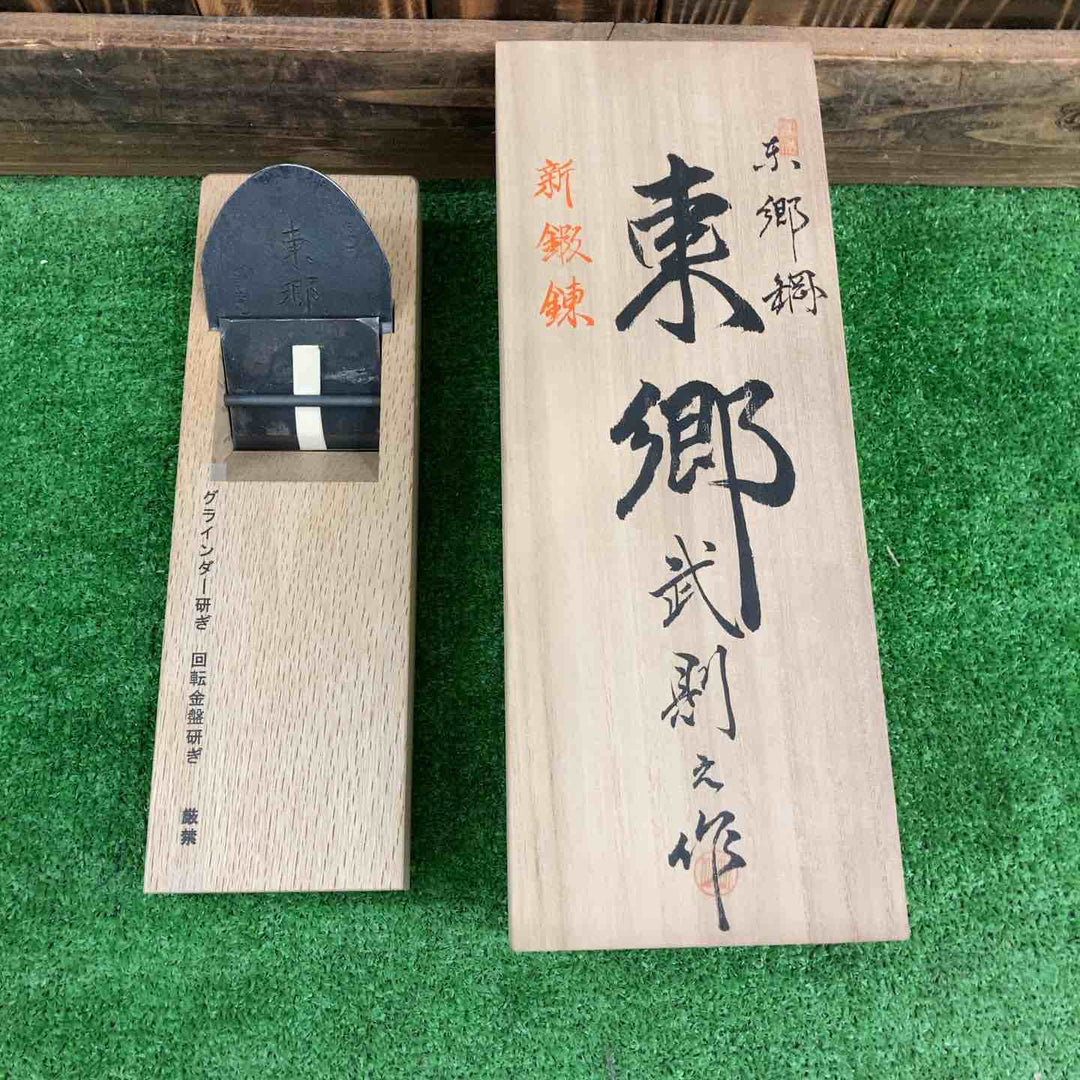 東郷
グラインダー研ぎ 回転金盤研ぎ 厳禁
东郷鋼
東郷
武則之作
新鍛錬